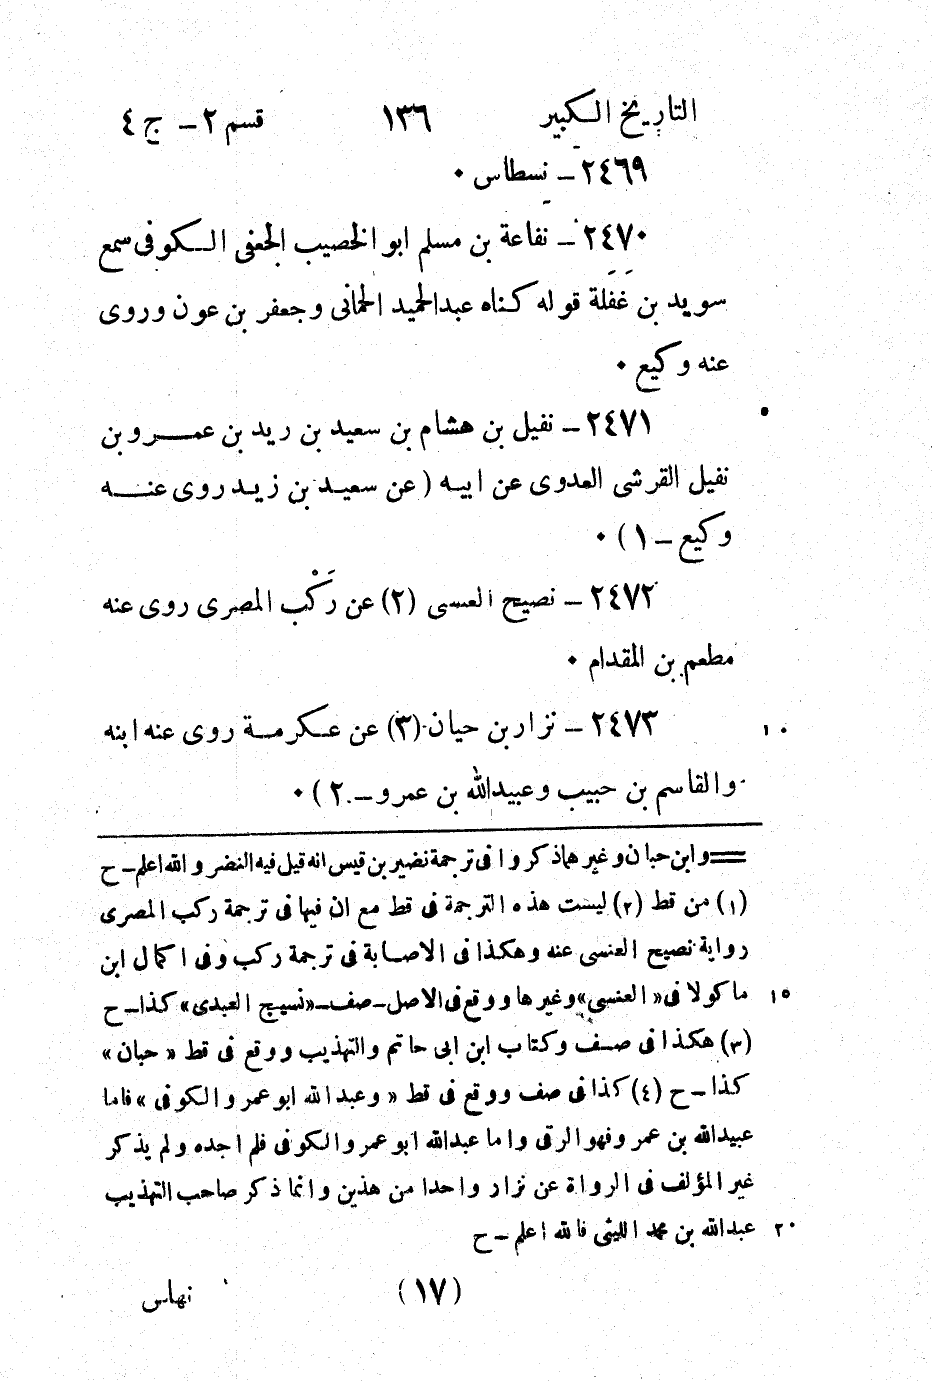 التاريخ الكبير ١٣٦ قسم ٢ – ج ٤
٢٤٦٩ – نسطاس ٠
٢٤٧٠ – نفاعة بن مسلم ابو الخصيب الجعفى الكوفى سمع
سويد بن غَفَلة قوله كناه عبدالحميد الحمانى وجعفر بن عون وروى
عنه وكيع ٠
٢٤٧١ – نفيل بن هشام بن سعيد بن ريد بن عمرو بن
نفيل القرشى العدوى عن ابيه ( عن سعيد بن زيد روى عنه
وكيع – ١ ) ٠
٢٤٧٢ – نصيح العسى (٢) عن رَكْب المصرى روى عنه
مطعم بن المقدام ٠
٢٤٧٣ – نزار بن حيان (٣) عن عكرمة روى عنه ابنه ١٠
والقاسم بن حبيب وعبيدالله بن عمرو – ٢ ) ٠
= وابن حبان وغيرهما ذكروا فى ترجمة نضير بن قيس انه قيل فيه النضر والله اعلم – ح
(١) من قط (٢) ليست هذه الترجمة فى قط مع ان فيها فى ترجمة ركب المصرى
رواية نصيح العنسى عنه وهكذا فى الاصابة فى ترجمة ركب وفى اكمال ابن
ماكولا فى « العنسى » وغيرها ووقع فى الاصل – صف – « نسيج العبدى » كذا – ح ١٥
(٣) هكذا فى صف وكتاب ابن ابى حاتم والتهذيب ووقع فى قط « حبان »
كذا – ح (٤) كذا فى صف ووقع فى قط « وعبد الله ابو عمر والكوفى » فاما
عبيدالله بن عمر وفهو الرقى واما عبدالله ابو عمر والكوفى فلم اجده ولم يذكر
غير المؤلف فى الرواة عن نزار واحدا من هذين وانما ذكر صاحب التهذيب
عبدالله بن محمد الليثى فالله اعلم – ح ٢٠
(١٧) نهاس